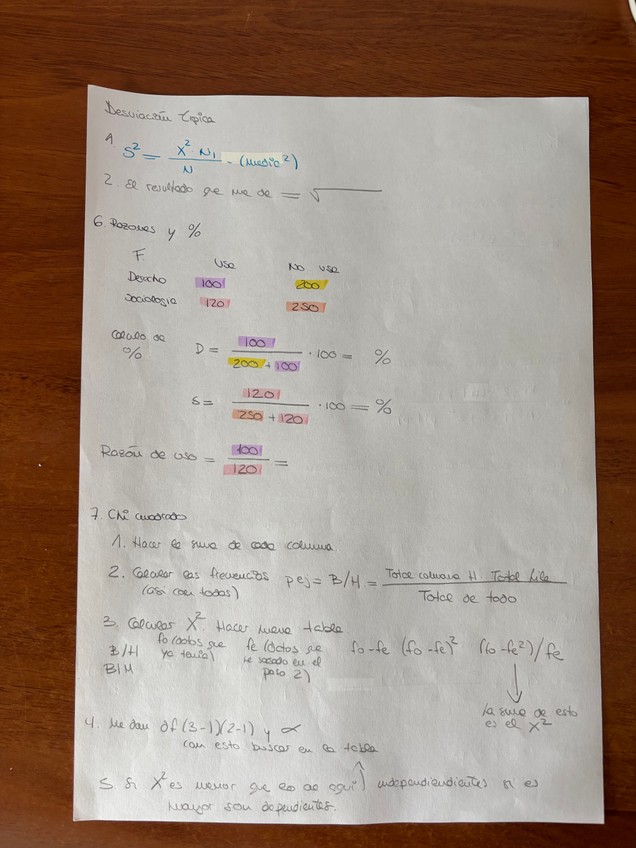 Desviación típica
1 S² = X²·N₁ / N - (Media²)
2. El resultado que me de = √
6. Razones y %
F.
Uso No uso
Derecho 100 200
Sociología 120 250
Cálculo de % D = 100 / 200 + 100 · 100 = %
S = 120 / 250 + 120 · 100 = %
Razón de uso = 100 / 120 =
7. Chi cuadrado
1. Hacer la suma de cada columna
2. Calcular las frecuencias pej = B/H = Total columna H · Total fila / Total de todo
(así con todas)
3. Calcular X². Hacer nueva tabla
fo (datos que ya tenía) fe (datos que he sacado en el paso 2) fo-fe (fo-fe)² (fo-fe²)/fe
B/H
B/M
la suma de esto
es el X²
4. Me dan df (3-1)(2-1) y α
con esto buscar en la tabla
5. Si X² es menor que lo de aquí independiendientes si es
mayor son dependientes.